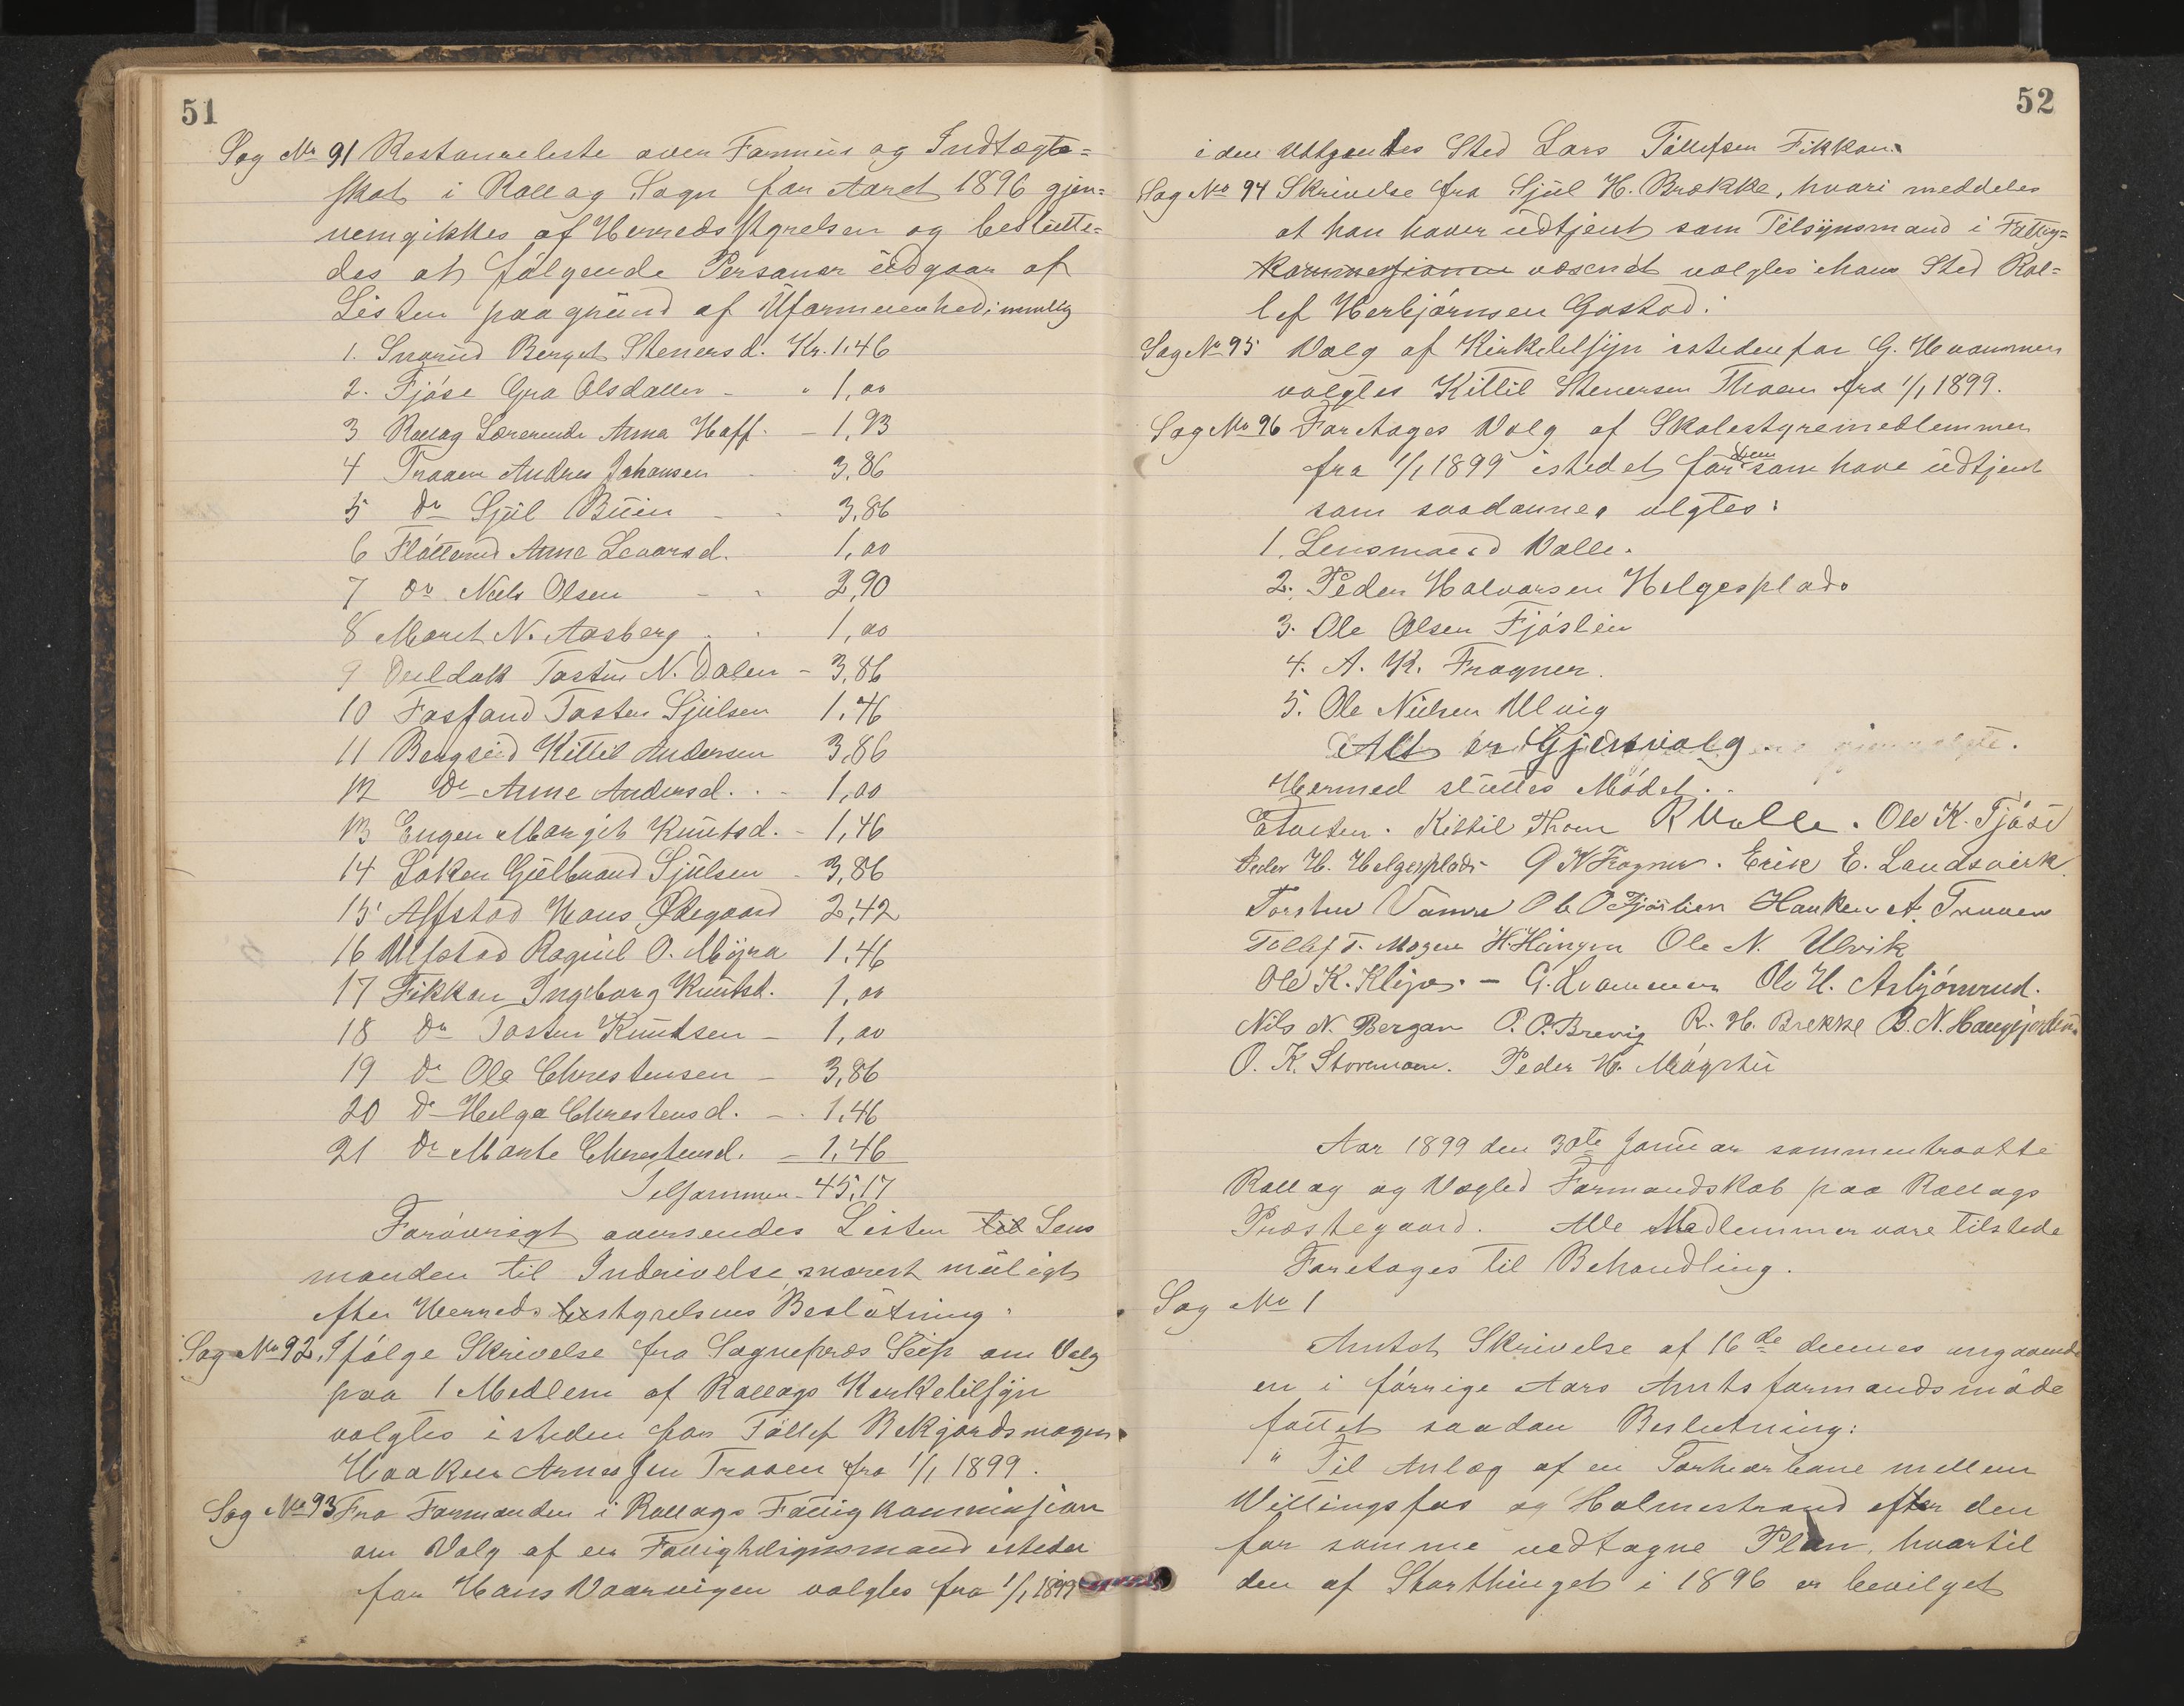 51
Sag No 91 Restanceliste over Formues og Indtægts=
skat i Rollag Sogn for Aaret 1896 gjen=
nemgikkes af Herredsstyrelsen og beslutte=
des at følgende Personer udgaar af
Listen paagrund af Uformuenhed: nemlig
1. Snarud Berget Stenersd. Kr. 1.46
2. Fjøse Gro Olsdatter - " 1,00
3 Rollag Lærerinde Anna Hoff. - 1,93
4 Traaen Andres Johansen - 3.86
5 Do Sjul Buin - - 3,86
6 Flåtterud Anne Levorsd. 1,00
7 Do Niels Olsen - - 2,90
8 Maret N. Aasberg . . 1,00
9 Tosten N. Dalen - 3,86
10 Tosten Sjulsen 1.46
11 Bergerud Kittil Andersen 3,86
12 Do Anne Andersd. . - 1,00
13 Engen Margit Knutsd. - 1,46
14 Løken Gulbrand Sjulsen - 3,86
15 Alfstad Hans Ødegaard 2,42
16 Ulfstad Ragnil O. Myra 1.46
17 Fikkan Ingeborg Knutsd. 1,00
18 Do Tosten Knutsen - 1,00
19 Do Ole Chrestensen - 3,86
20 Do Helga Chrestensd. - . 1,46
21 Do Marte Chrestensd. - 1,46
Tilsammen - 45,17
Forøvrigt oversendes Listen til Lens
manden til Inddrivelse snarest muligt
efter Herreds bestyrelsens Beslutning.
Sag No 92. Ifølge Skrivelse fra Sognepræs Seip om Valg
paa 1 Medlem af Rollags Kirketilsyn
valgtes isteden for Tollef Bekjordsmogen
Haaken Arnesen Traaen fra 1/1 1899.
Sag No 93 Fra Formanden i Rollags Fattigkommission
om Valg af en Fattigtilsynsmand isteden
for Hans Vaarvigen valgtes fra 1/1 1899
52
i den Udtgaaendes Sted Lars Tollefsen Fikkan.
Sag No 94 Skrivelse fra Sjul H. Brække, hvori meddeles
at han haver udtjent som Tilsynsmand i Fattig=
kommissionen væsenet valgtes i hans Sted Rol=
lef Herbjørnsen Gastad.
Sag No 95 Valg af Kirketilsyn istedenfor G. Hvammen
valgtes Kittil Stenersen Thoen fra 1/1 1899.
Sag No 96 Foretages Valg af Skolestyremedlemmer
fra 1/1 1899 istedet for dem som have udtjent
som saadanne valgtes:
1. Lensmand Valle.
2. Peder Halvorsen Helgesplads
3. Ole Olsen Fjøslien
4. A. K. Fragner.
5. Ole Nielsen Ulvig
Alt er Gjenvalg
Hermed sluttes Mødet..
Kittil Thoen R Valle. Ole K. Fjøse
Peder H. Helgesplads A K Fragner. Erik E. Landsverk
Torsten Vamre Ole O Fjøslien Haaken A. Traaen
Tollef T. Mogen H. Ole N. Ulvik
Ole K. Kligo. - G. Hvammen Ole H. Asbjørnrud.
Nils N. Bergan O. O. Brevig R. H. Brekke B. N. Haugejordene
O. K. Stormoen. Peder H. Møgstu
Aar 1899 den 30te Januar sammentraatte
Rollag og Vegli Formandskab paa Rollags
Præstegaard. Alle Medlemmer vare tilstede
Foretages til Behandling.
Sag No 1
Amtets Skrivelse af 16de dennes angaaende
en i forrige Aars Amtsformandsmøde
fattet saadan Beslutning:
" Til Anlæg af en Tørhiørbane mellem
Willingsfos og Holmestrand efter den
for samme vedtagne Plan, hvortil
den af Storthinget i 1896 er bevilget